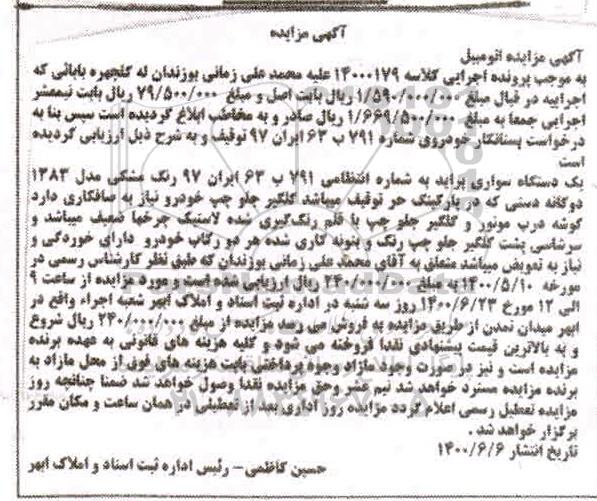 آگهی مزایده
آگهی مزایده اتومبیل
به موجب پرونده اجرایی کلاسه ۱۴۰۰۰۱۷۹ علیه محمد علی زمانی یوزندان له گلچهره بابائی که
اجراییه در قبال مبلغ ۱/۵۹۰/۰۰۰/۰۰۰ ریال بابت اصل و مبلغ ۷۹/۵۰۰/۰۰۰ ریال بابت نیمعشر
اجرایی جمعا به مبلغ ۱/۶۶۹/۵۰۰/۰۰۰ ریال صادر و به مخاطب ابلاغ گردیده است سپس بنا به
درخواست بستانکار خودروی شماره ۷۹۱ ب ۶۳ ایران ۹۷ توقیف و به شرح ذیل ارزیابی گردیده
است
یک دستگاه سواری پراید به شماره انتظامی ۷۹۱ ب ۶۳ ایران ۹۷ رنگ مشکی مدل ۱۳۸۳
دوگانه دستی که در پارکینگ حر توقیف میباشد گلگیر جلو چپ خودرو نیاز به صافکاری دارد
گوشه درب موتور و گلگیر جلو چپ با قلم رنگ‌گیری شده لاستیک چرخها ضعیف میباشد و
سرشاسی پشت گلگیر جلو چپ رنگ و بتونه کاری شده هر دو رکاب خودرو دارای خوردگی و
نیاز به تعویض میباشد متعلق به آقای محمد علی زمانی یوزندان که طبق نظر کارشناس رسمی در
مورخه ۱۴۰۰/۵/۱۰ به مبلغ ۲۴۰/۰۰۰/۰۰۰ ریال ارزیابی شده است و مورد مزایده از ساعت ۹
الی ۱۲ مورخ ۱۴۰۰/۶/۲۳ روز سه شنبه در اداره ثبت اسناد و املاک ابهر شعبه اجراء واقع در
ابهر میدان تمدن از طریق مزایده به فروش می رسد مزایده از مبلغ ۲۴۰/۰۰۰/۰۰۰ ریال شروع
و به بالاترین قیمت پیشنهادی نقدا فروخته می شود و کلیه هزینه های قانونی به عهده برنده
مزایده است و نیز در صورت وجود مازاد وجوه پرداختی بابت هزینه های فوق از محل مازاد به
برنده مزایده مسترد خواهد شد نیم عشر وحق مزایده نقدا وصول خواهد شد ضمنا چنانچه روز
مزایده تعطیل رسمی اعلام گردد مزایده روز اداری بعد از تعطیلی در همان ساعت و مکان مقرر
برگزار خواهد شد .
تاریخ انتشار ۱۴۰۰/۶/۶
حسین کاظمی – رئیس اداره ثبت اسناد و املاک ابهر